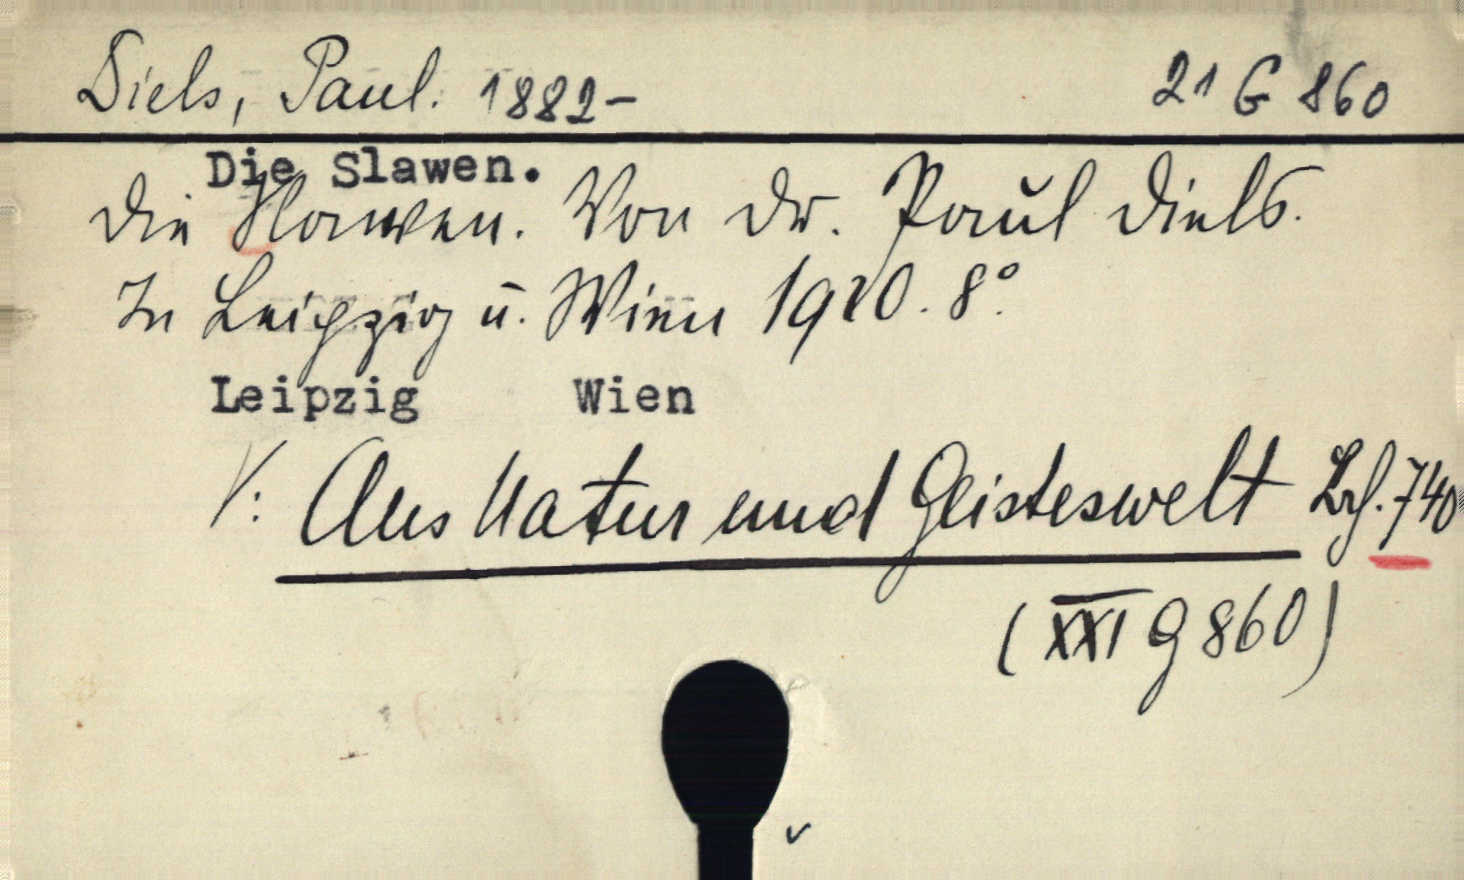 Diels, Paul. 1882- 21 G 860
Die Slawen.
Die Slawen. Von Dr. Paul Diels.
In Leipzig u. Wien 1920. 8°.
Leipzig Wien
V: Aus Natur und Geisteswelt 740
(XXI G 860)